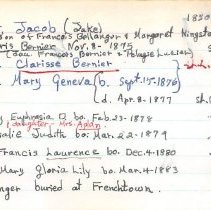 Jacob (Jake) 1850
son of Francois Belanger & Margaret Kingsto
ris Bernier Nov. 8 - 1875
(dau. Francois Bernier & Pelagie Lucier)
Clarisse Bernier
Mary Geneva (b. Sept. 15 - 1876
d. Apr. 8 - 1877
y Euphrasia D bo. Feb. 23 - 1878
daughter Mrs.
alie Judith bo. Mar. 22 - 1879
Francis Laurence bo. Dec. 4 - 1880
Mary Gloria Lily bo. Mar. 4 - 1883
nger buried at Frenchtown.